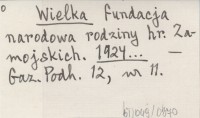 Wielka fundacja
narodowa rodziny hr. Za-
mojskich. 1924... —
Gaz. Podh. 12, nr 11.